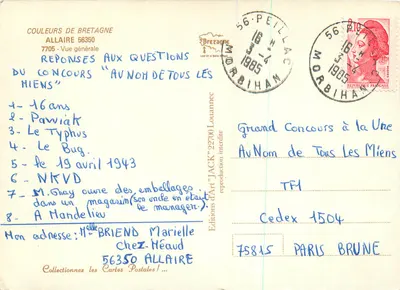 COULEURS DE BRETAGNE
ALLAIRE 56350
7705 - Vue générale
REPONSES AUX QUESTIONS
DU CONCOURS "AU NOM DE TOUS LES
MIENS"
1 - 16 ans
2 - Pawiak
3 - Le Typhus
4 - Le Bug.
5 - le 19 avril 1943
6 - NKVD
7 - M. Gray ouvre des emballages
dans un magasin (son oncle en était
le manager).
8 - A Mandelieu
Mon adresse: Melle BRIEND Marielle
Chez. Héaud
56350 ALLAIRE
Collectionnez les Cartes Postales !...
Bretagne
Edition d'Art "JACK" 22700 Louannec
reproduction interdite
56 - PEILLAC
16 H
3 - 4
1985
MORBIHAN
56 - PEILLAC
16 H
3 - 4
1985
MORBIHAN
Grand Concours à la Une
Au Nom de Tous Les Miens
TF1
Cedex 1504
75815 PARIS BRUNE